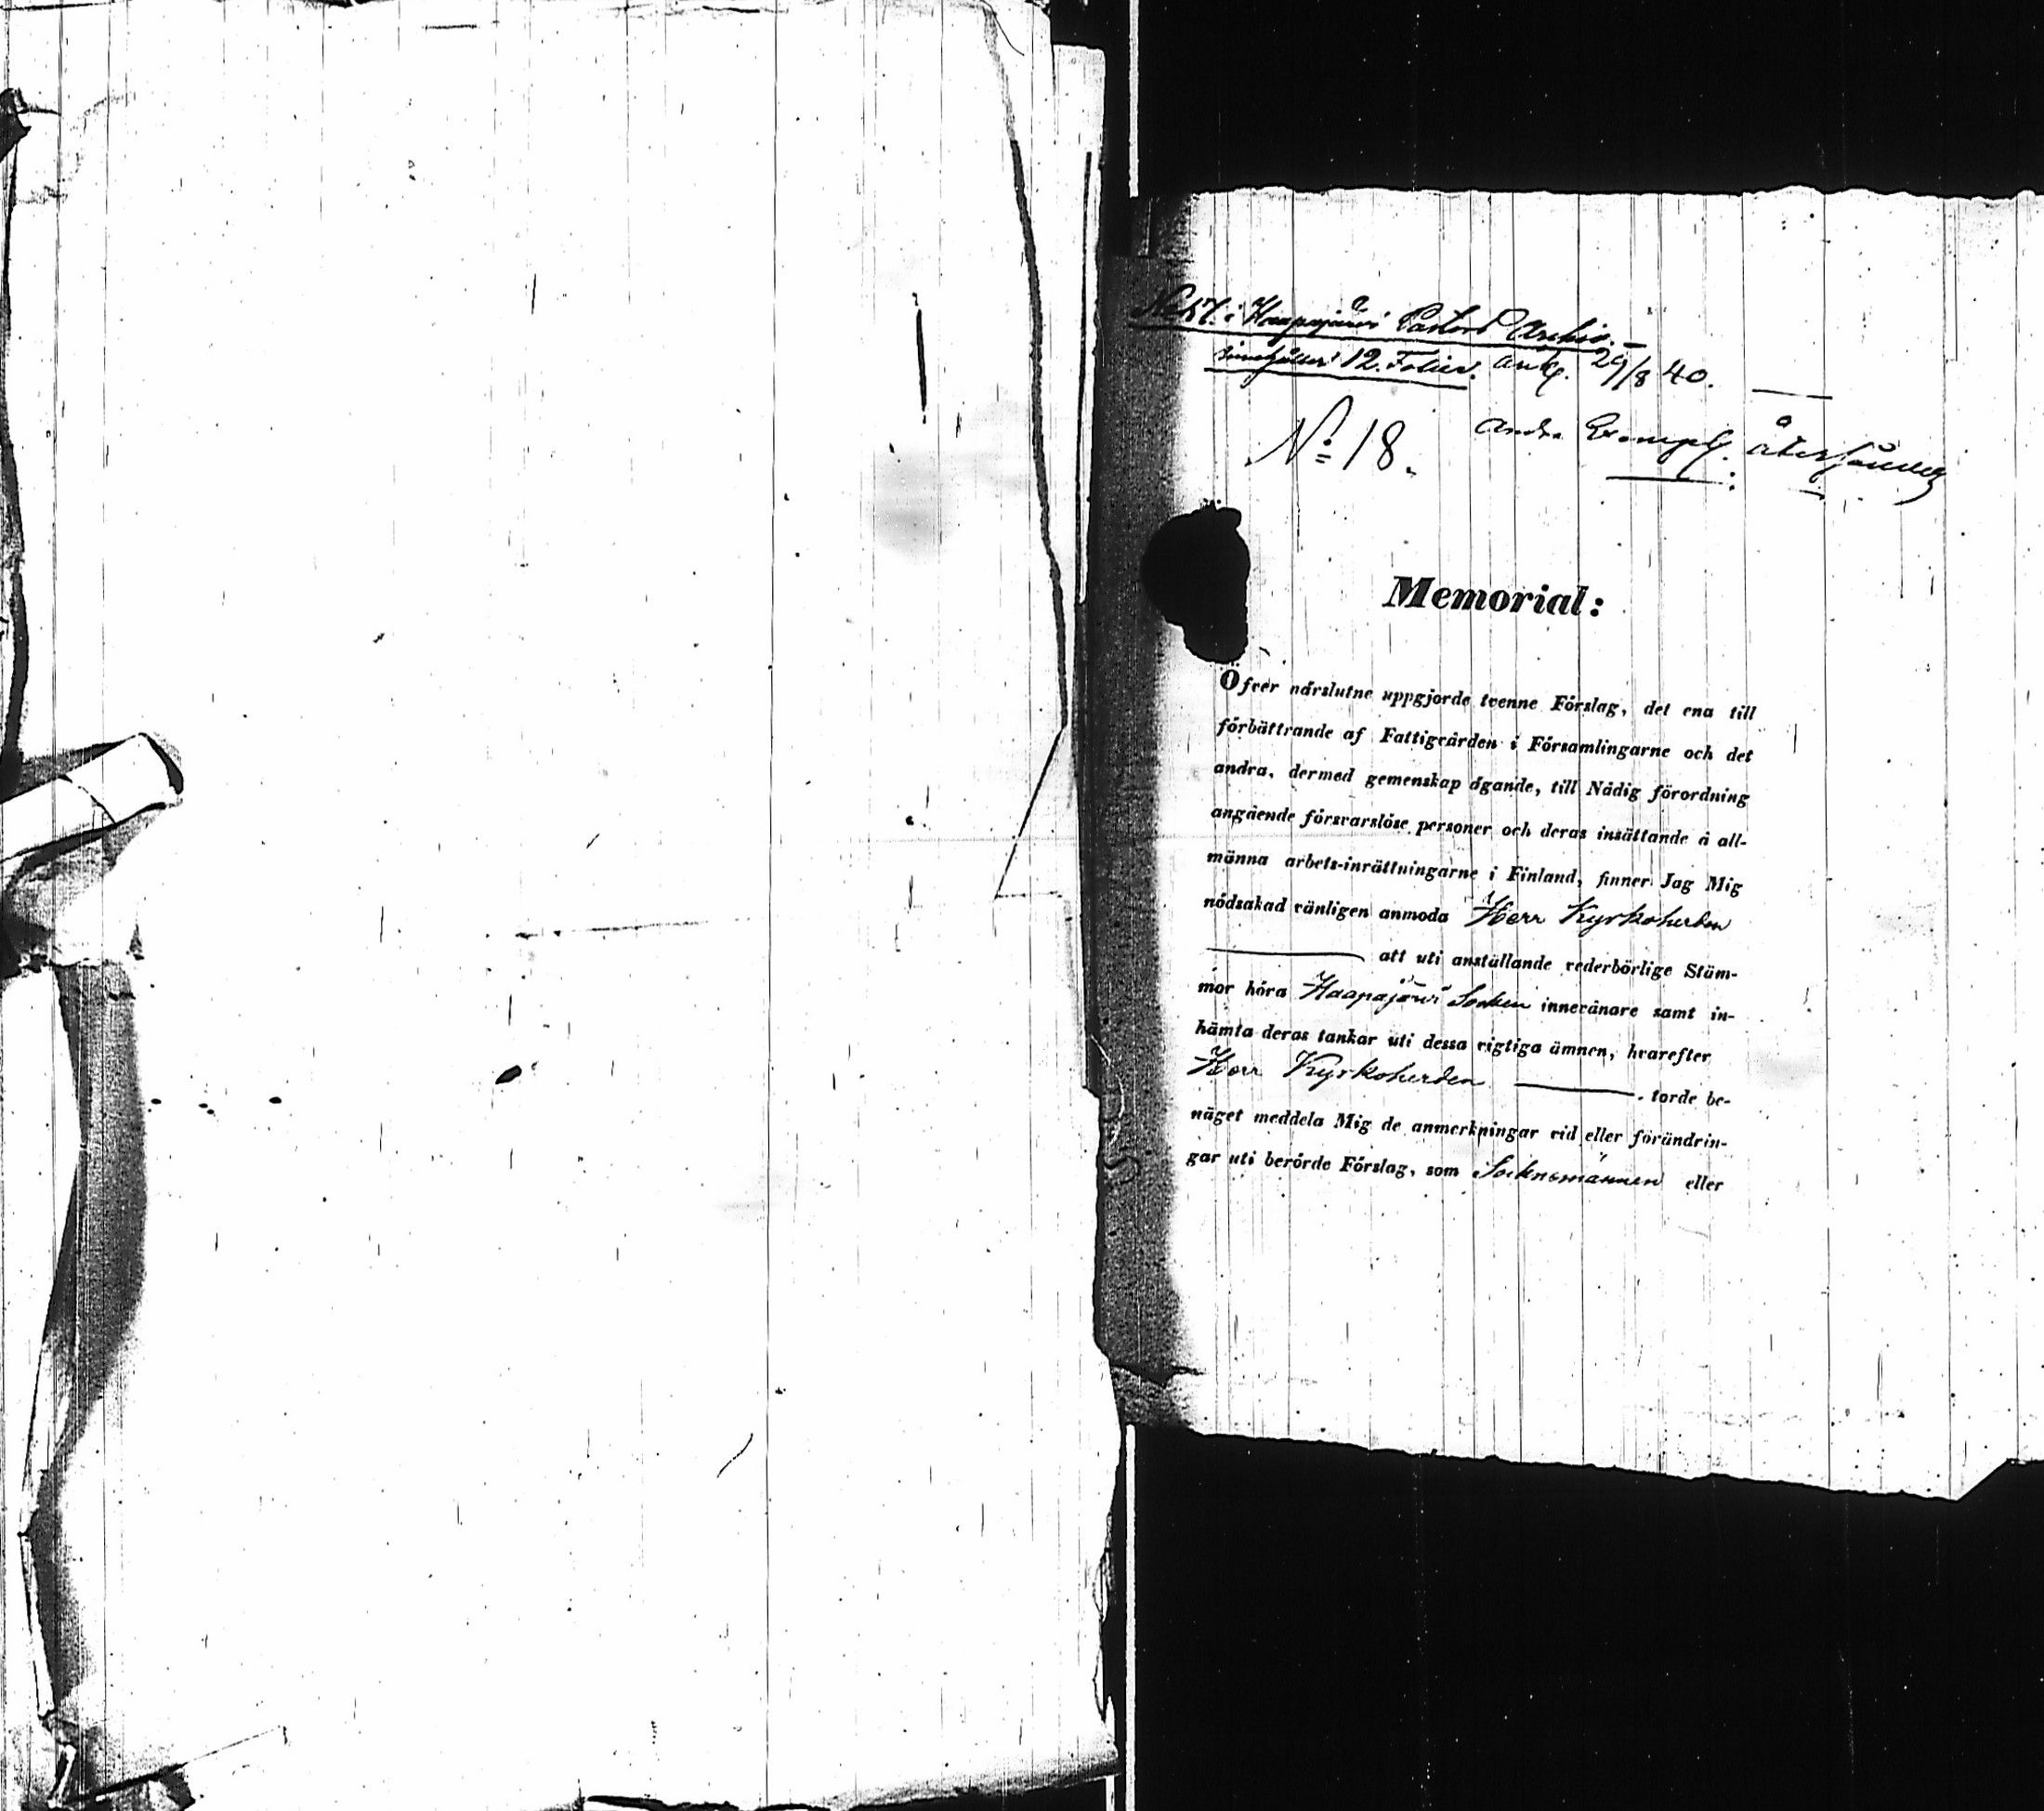 i Haapajärvi Pastors Archiv.
innehåller 12. Folier. ank. 29/8 40.
No 18.
andra Exempl. återsändt
Memorial:
Öfver närslutne uppgjorde tvenne Förslag, det ena till
förbättrande af Fattigvården i Församlingarne och det
andra, dermed gemenskap ägande, till Nådig förordning
angående försvarslöse personer och deras insättande å all-
männa arbets-inrättningarne i Finland, finner Jag Mig
nödsakad vänligen anmoda Herr Kyrkoherden
att uti anställande vederbörlige Stäm-
mor höra Haapajärvi Socken innevånare samt in-
hämta deras tankar uti dessa vigtiga ämnen, hvarefter
Herr Kyrkoherden torde be-
näget meddela Mig de anmerkningar vid eller förändrin-
gar uti berörde Förslag, som Socknemännen eller